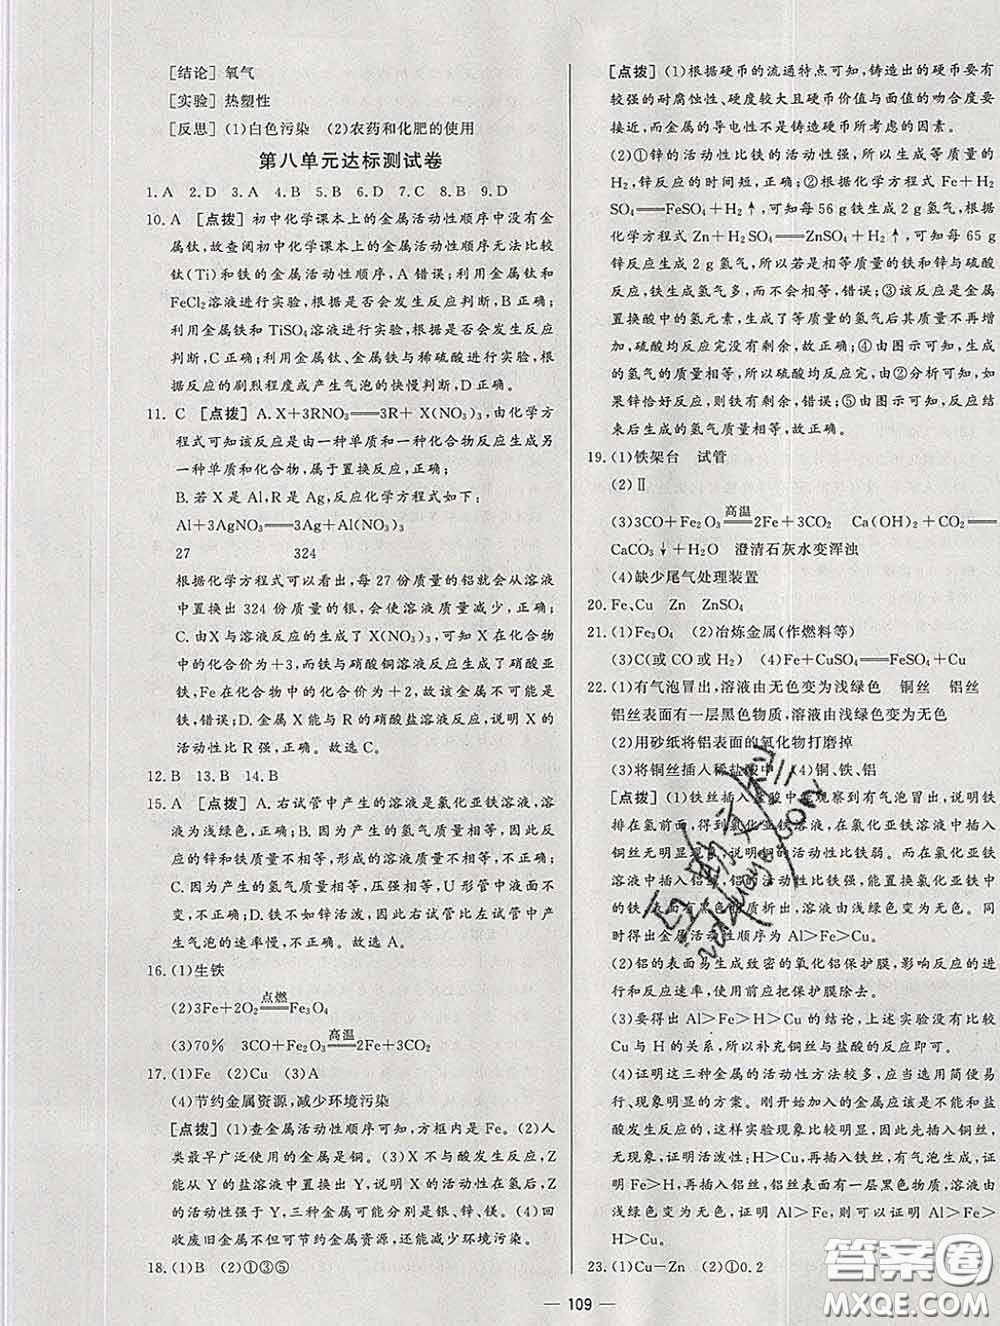 [结论] 氧气
[实验] 热塑性
[反思] (1)白色污染 (2)农药和化肥的使用
第八单元达标测试卷
1. A 2. D 3. A 4. B 5. B 6. D 7. C 8. B 9. D
10. A [点拨] 初中化学课本上的金属活动性顺序中没有金
属钛,故查阅初中化学课本上的金属活动性顺序无法比较
钛(Ti)和铁的金属活动性顺序,A 错误;利用金属钛和
FeCl₂溶液进行实验,根据是否会发生反应判断,B 正确;
利用金属铁和 TiSO₄ 溶液进行实验,根据是否会发生反应
判断,C 正确;利用金属钛、金属铁与稀硫酸进行实验,根
据反应的剧烈程度或产生气泡的快慢判断,D 正确。
11. C [点拨] A. X+3RNO₃══3R+ X(NO₃)₃,由化学方
程式可知该反应是由一种单质和一种化合物反应生成另
一种单质和化合物,属于置换反应,正确;
B. 若 X 是 Al,R 是 Ag,反应化学方程式如下:
Al+3AgNO₃══3Ag+Al(NO₃)₃
27 324
根据化学方程式可以看出,每 27 份质量的铝就会从溶液
中置换出 324 份质量的银,会使溶液质量减少,正确;
C. 由 X 与溶液反应的生成了 X(NO₃)₃,可知 X 在化合物
中的化合价为+3,而铁与硝酸铜溶液反应生成了硝酸亚
铁,Fe 在化合物中的化合价为+2,故该金属不可能是
铁,错误;D. 金属 X 能与 R 的硝酸盐溶液反应,说明 X 的
活动性比 R 强,正确。故选 C。
12. B 13. B 14. B
15. A [点拨] A. 右试管中产生的溶液是氯化亚铁溶液,溶
液为浅绿色,正确;B. 因为产生的氢气质量相等,因此反
应的锌和铁质量不相等,形成的溶液质量不相等,不正确;
C. 因为产生的氢气质量相等,压强相等,U 形管中液面不
变,不正确;D. 铁不如锌活泼,因此右试管比左试管中产
生气泡的速率慢,不正确。故选 A。
16. (1)生铁
(2)3Fe+2O₂ 点燃══Fe₃O₄
(3)70% 3CO+Fe₂O₃ 高温══2Fe+3CO₂
17. (1)Fe (2)Cu (3)A
(4)节约金属资源,减少环境污染
[点拨] (1)查金属活动性顺序可知,方框内是 Fe。(2)人
类最早广泛使用的金属是铜。(3)X 不与酸发生反应,Z
能从 Y 的盐溶液中置换出 Y,说明 X 的活动性在氢后,Z
的活动性强于 Y,三种金属可能分别是银、锌、镁。(4)回
收废旧金属不但可节约金属资源,还能减少环境污染。
18. (1)B (2)①③⑤
[点拨] (1)根据硬币的流通特点可知,铸造出的硬币要有
较强的耐腐蚀性、硬度较大且硬币价值与面值的吻合度要
接近,而金属的导电性不是铸造硬币所考虑的因素。
(2)①锌的活动性比铁的活动性强,所以生成等质量的
H₂,锌反应的时间短,正确;②根据化学方程式 Fe+H₂
SO₄══FeSO₄+H₂↑,可知每 56 g铁生成 2 g氢气,根据
化学方程式 Zn+H₂SO₄══ZnSO₄+H₂↑,可知每 65 g
锌反应生成 2 g 氢气,所以若是相等质量的铁和锌与硫酸
反应,铁生成氢气多,而不会相等,错误;③该反应是金属
置换酸中的氢元素,生成了等质量的氢气后其质量不再增
加,硫酸均反应完没有剩余,正确;④由图示可知,生成
的氢气的质量相等,所以硫酸均反应完,由②分析可知,如
果锌恰好反应,则铁有剩余,错误;⑤由图示可知,反应结
束后生成的氢气质量相等,正确。
19. (1)铁架台 试管
(2)Ⅱ
(3)3CO+Fe₂O₃ 高温══2Fe+3CO₂ Ca(OH)₂+CO₂══
CaCO₃↓+H₂O 澄清石灰水变浑浊
(4)缺少尾气处理装置
20. Fe、Cu Zn ZnSO₄
21. (1)Fe₃O₄ (2)冶炼金属(作燃料等)
(3)C(或 CO 或 H₂) (4)Fe+CuSO₄══FeSO₄+Cu
22. (1)有气泡冒出,溶液由无色变为浅绿色 铜丝 铝丝
铝丝表面有一层黑色物质,溶液由浅绿色变为无色
(2)用砂纸将铝表面的氧化物打磨掉
(3)将铜丝插入稀盐酸中 (4)铜、铁、铝
[点拨] (1)铁丝插入盐酸中观察到有气泡冒出,说明铁
排在氢前面,得到氯化亚铁溶液,在氯化亚铁溶液中插入
铜丝无明显现象,铜的活动性比铁弱。而在氯化亚铁
溶液中插入铝丝,铝的活动性比铁强,能置换氯化亚铁中
的铁,表面有黑色物质析出,溶液由浅绿色变为无色。同
时得出金属活动性顺序为 Al>Fe>Cu。
(2)铝的表面易生成致密的氧化铝保护膜,影响反应的进
行和反应速率,使用前应把保护膜除去。
(3)要得出 Al>Fe>H>Cu 的结论,上述实验没有比较
Cu 与 H 的关系,所以补充铜丝与盐酸的反应即可。
(4)证明这三种金属的活动性方法较多,应当选简便易
行、现象明显的方案。既刚开始加入的金属应该是不能和盐
酸反应的,这样实验现象比较明显,因此先插入铜丝,
无现象,证明活泼性:H>Cu,再插入铁丝,有气泡,证明
Fe>H,再插入铝丝,表面有一层黑色物质析出,溶液由
浅绿色变为无色,证明 Al>Fe,则可以得出 Al>Fe>
H>Cu。
23. (1)Cu-Zn (2)①0.2
— 109 —
答案圈
MXQE.COM